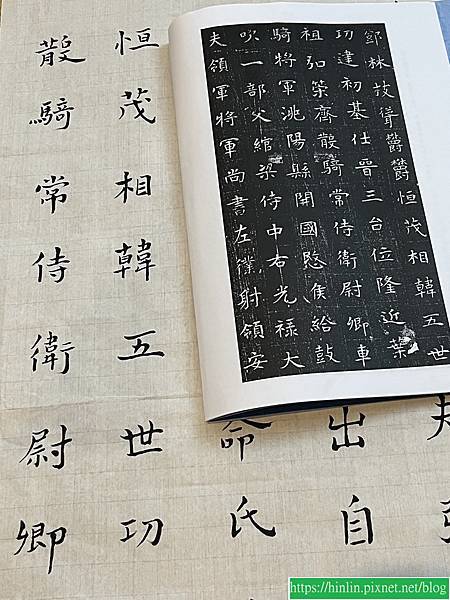 鄧林枝聳鬱鬱恒茂相韓五世
功建初基仕晉三台位隆近葉
祖弘策齊散騎常侍衛尉卿車
騎將軍洮陽縣開國愍侯給鼓
吹一部父綰梁侍中右光祿大
夫領軍將軍尚書左僕射領安
出自
命氏
恒茂相韓五世功
散騎常侍衛尉卿
https://hinlin.pixnet.net/blog